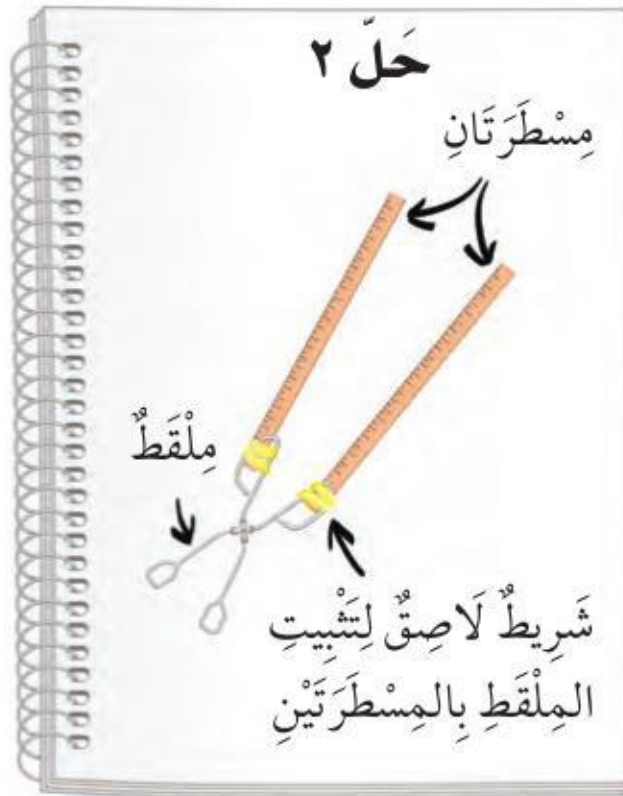 حَلّ ٢
مِسْطَرَتَانِ
مِلْقَطٌ
شَرِيطٌ لَاصِقٌ لِتَثْبِيتِ
المِلْقَطِ بِالمِسْطَرَتَيْنِ